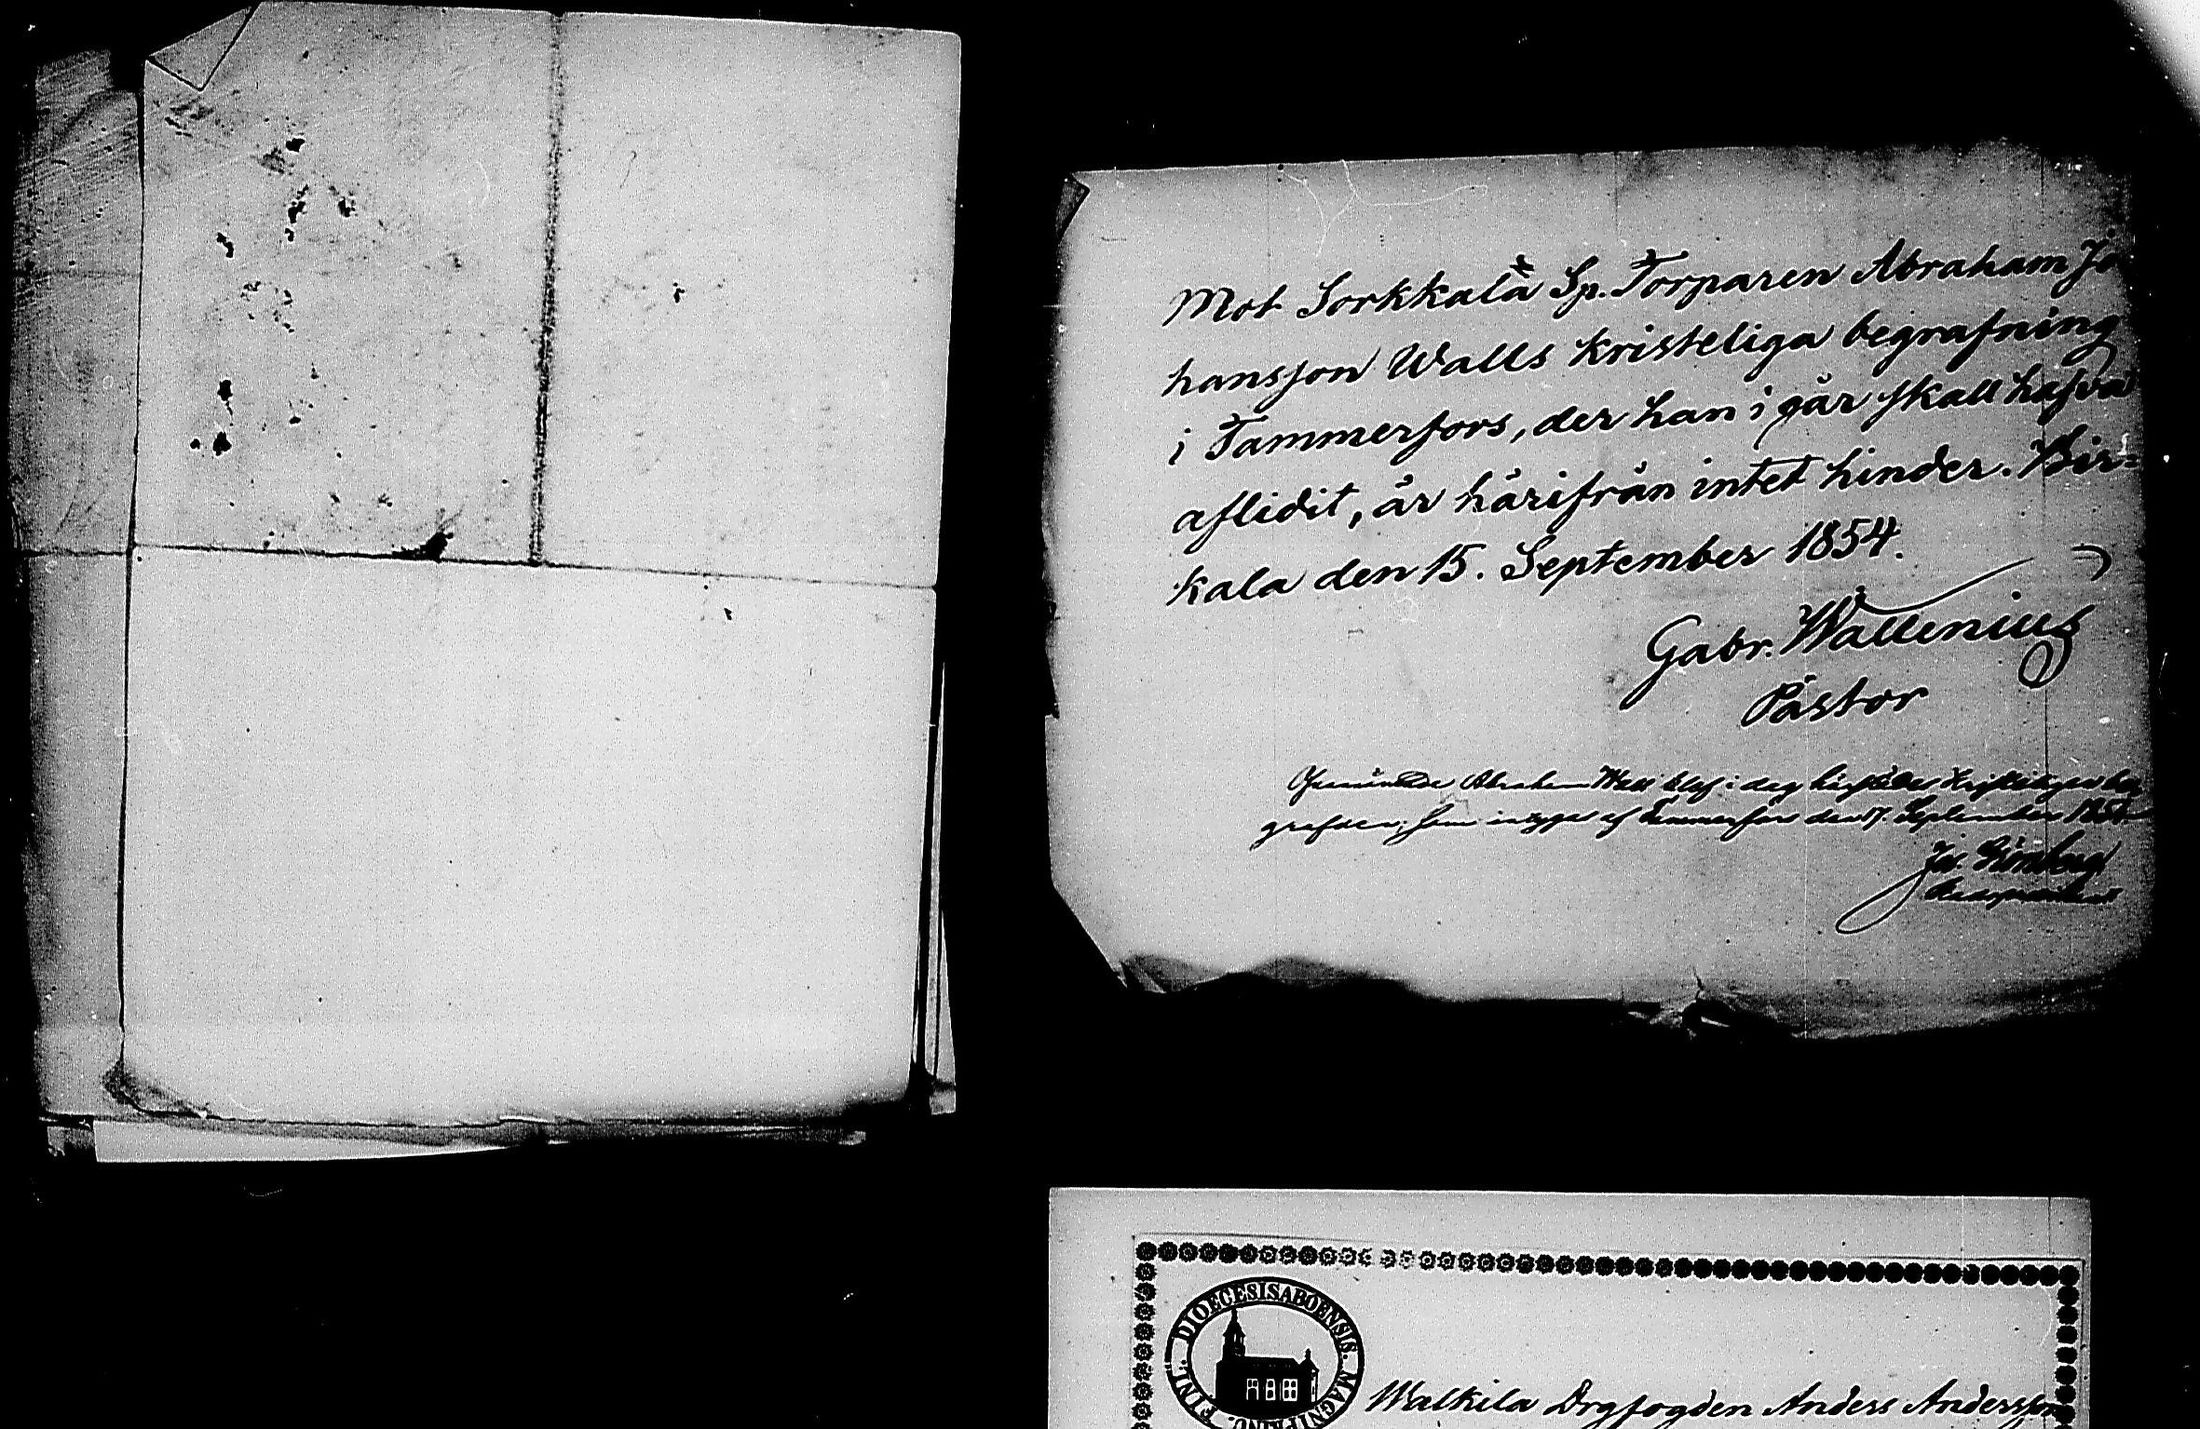 Mot Sorkkala Sp. Torparen Abraham Jo
hansson Walls kristeliga begrafning
i Tammerfors, der han i går skall hafva
aflidit, är härifrån intet hinder. Bir=
kala den 15. September 1854.
Gabr. Wallenius
Pastor
Abraham Wall blef i dag härstädes kristeligen be
grafven; som intygas af Tammerfors den 17 September 1854
DIOECESIS ABOENSIS. MAGNI PRINC. FINL.
Walkila Drgfogden Anders Andersson